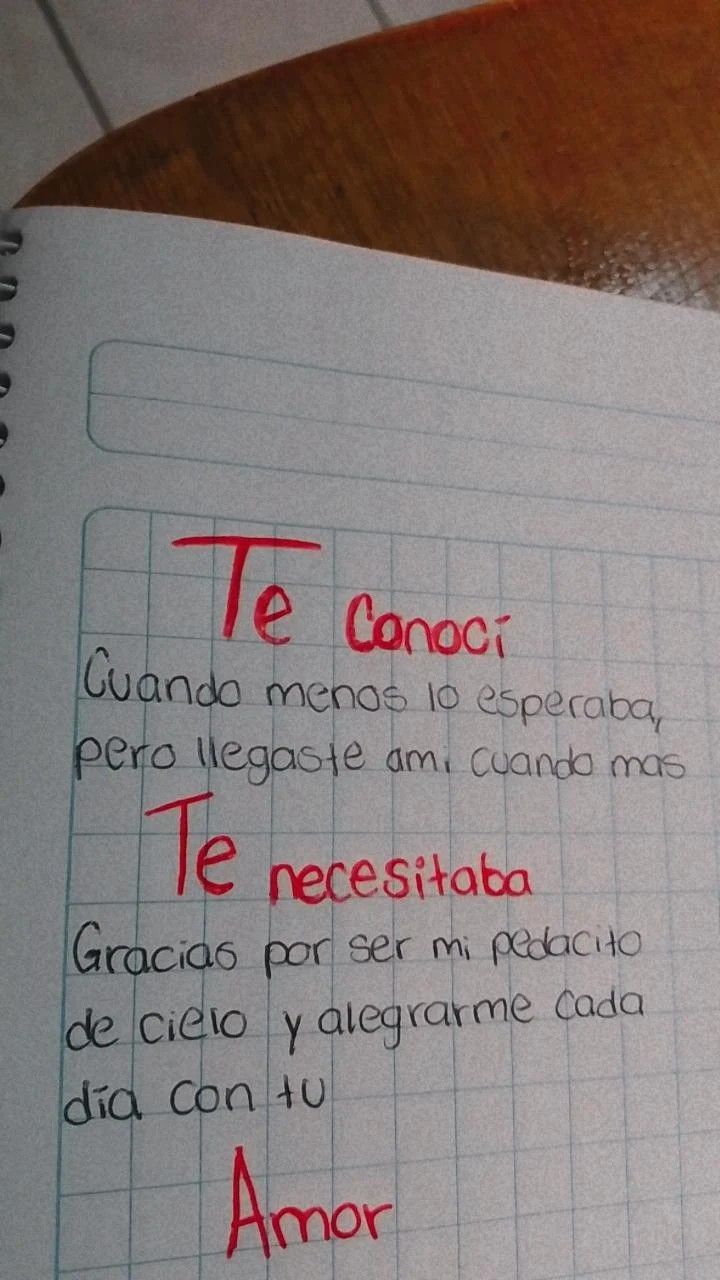 Te conocí
Cuando menos lo esperaba,
pero llegaste ami cuando mas
Te necesitaba
Gracias por ser mi pedacito
de cielo y alegrarme cada
día con tu
Amor